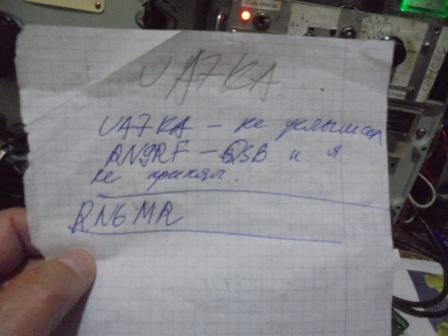 UA7KA
UA7KA – не услышал
RN9RF – QSB и я
не принял.
RN6MR